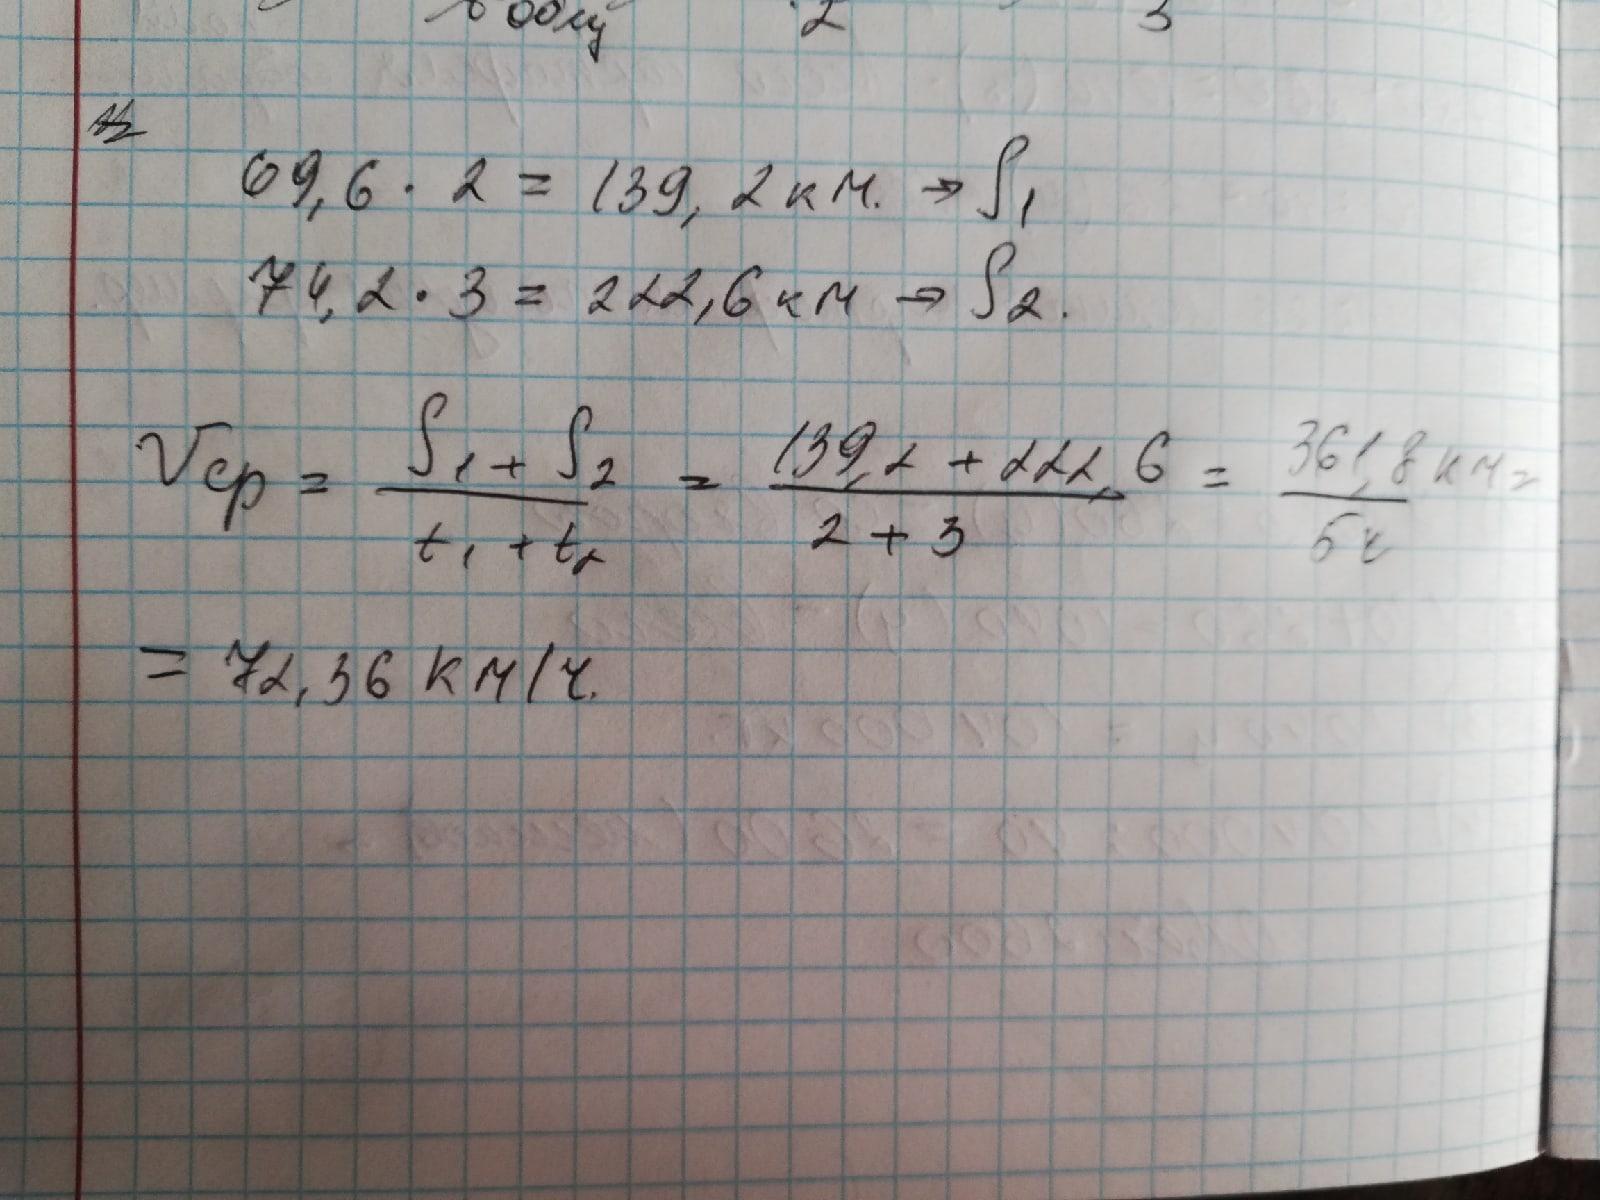 2 3
69,6 · 2 = 139,2 км. → S₁
74,2 · 3 = 222,6 км → S₂.
Vср = (S₁ + S₂)/(t₁ + t₂) = (139,2 + 222,6)/(2 + 3) = 361,8 км/5ч =
= 72,36 км/ч.